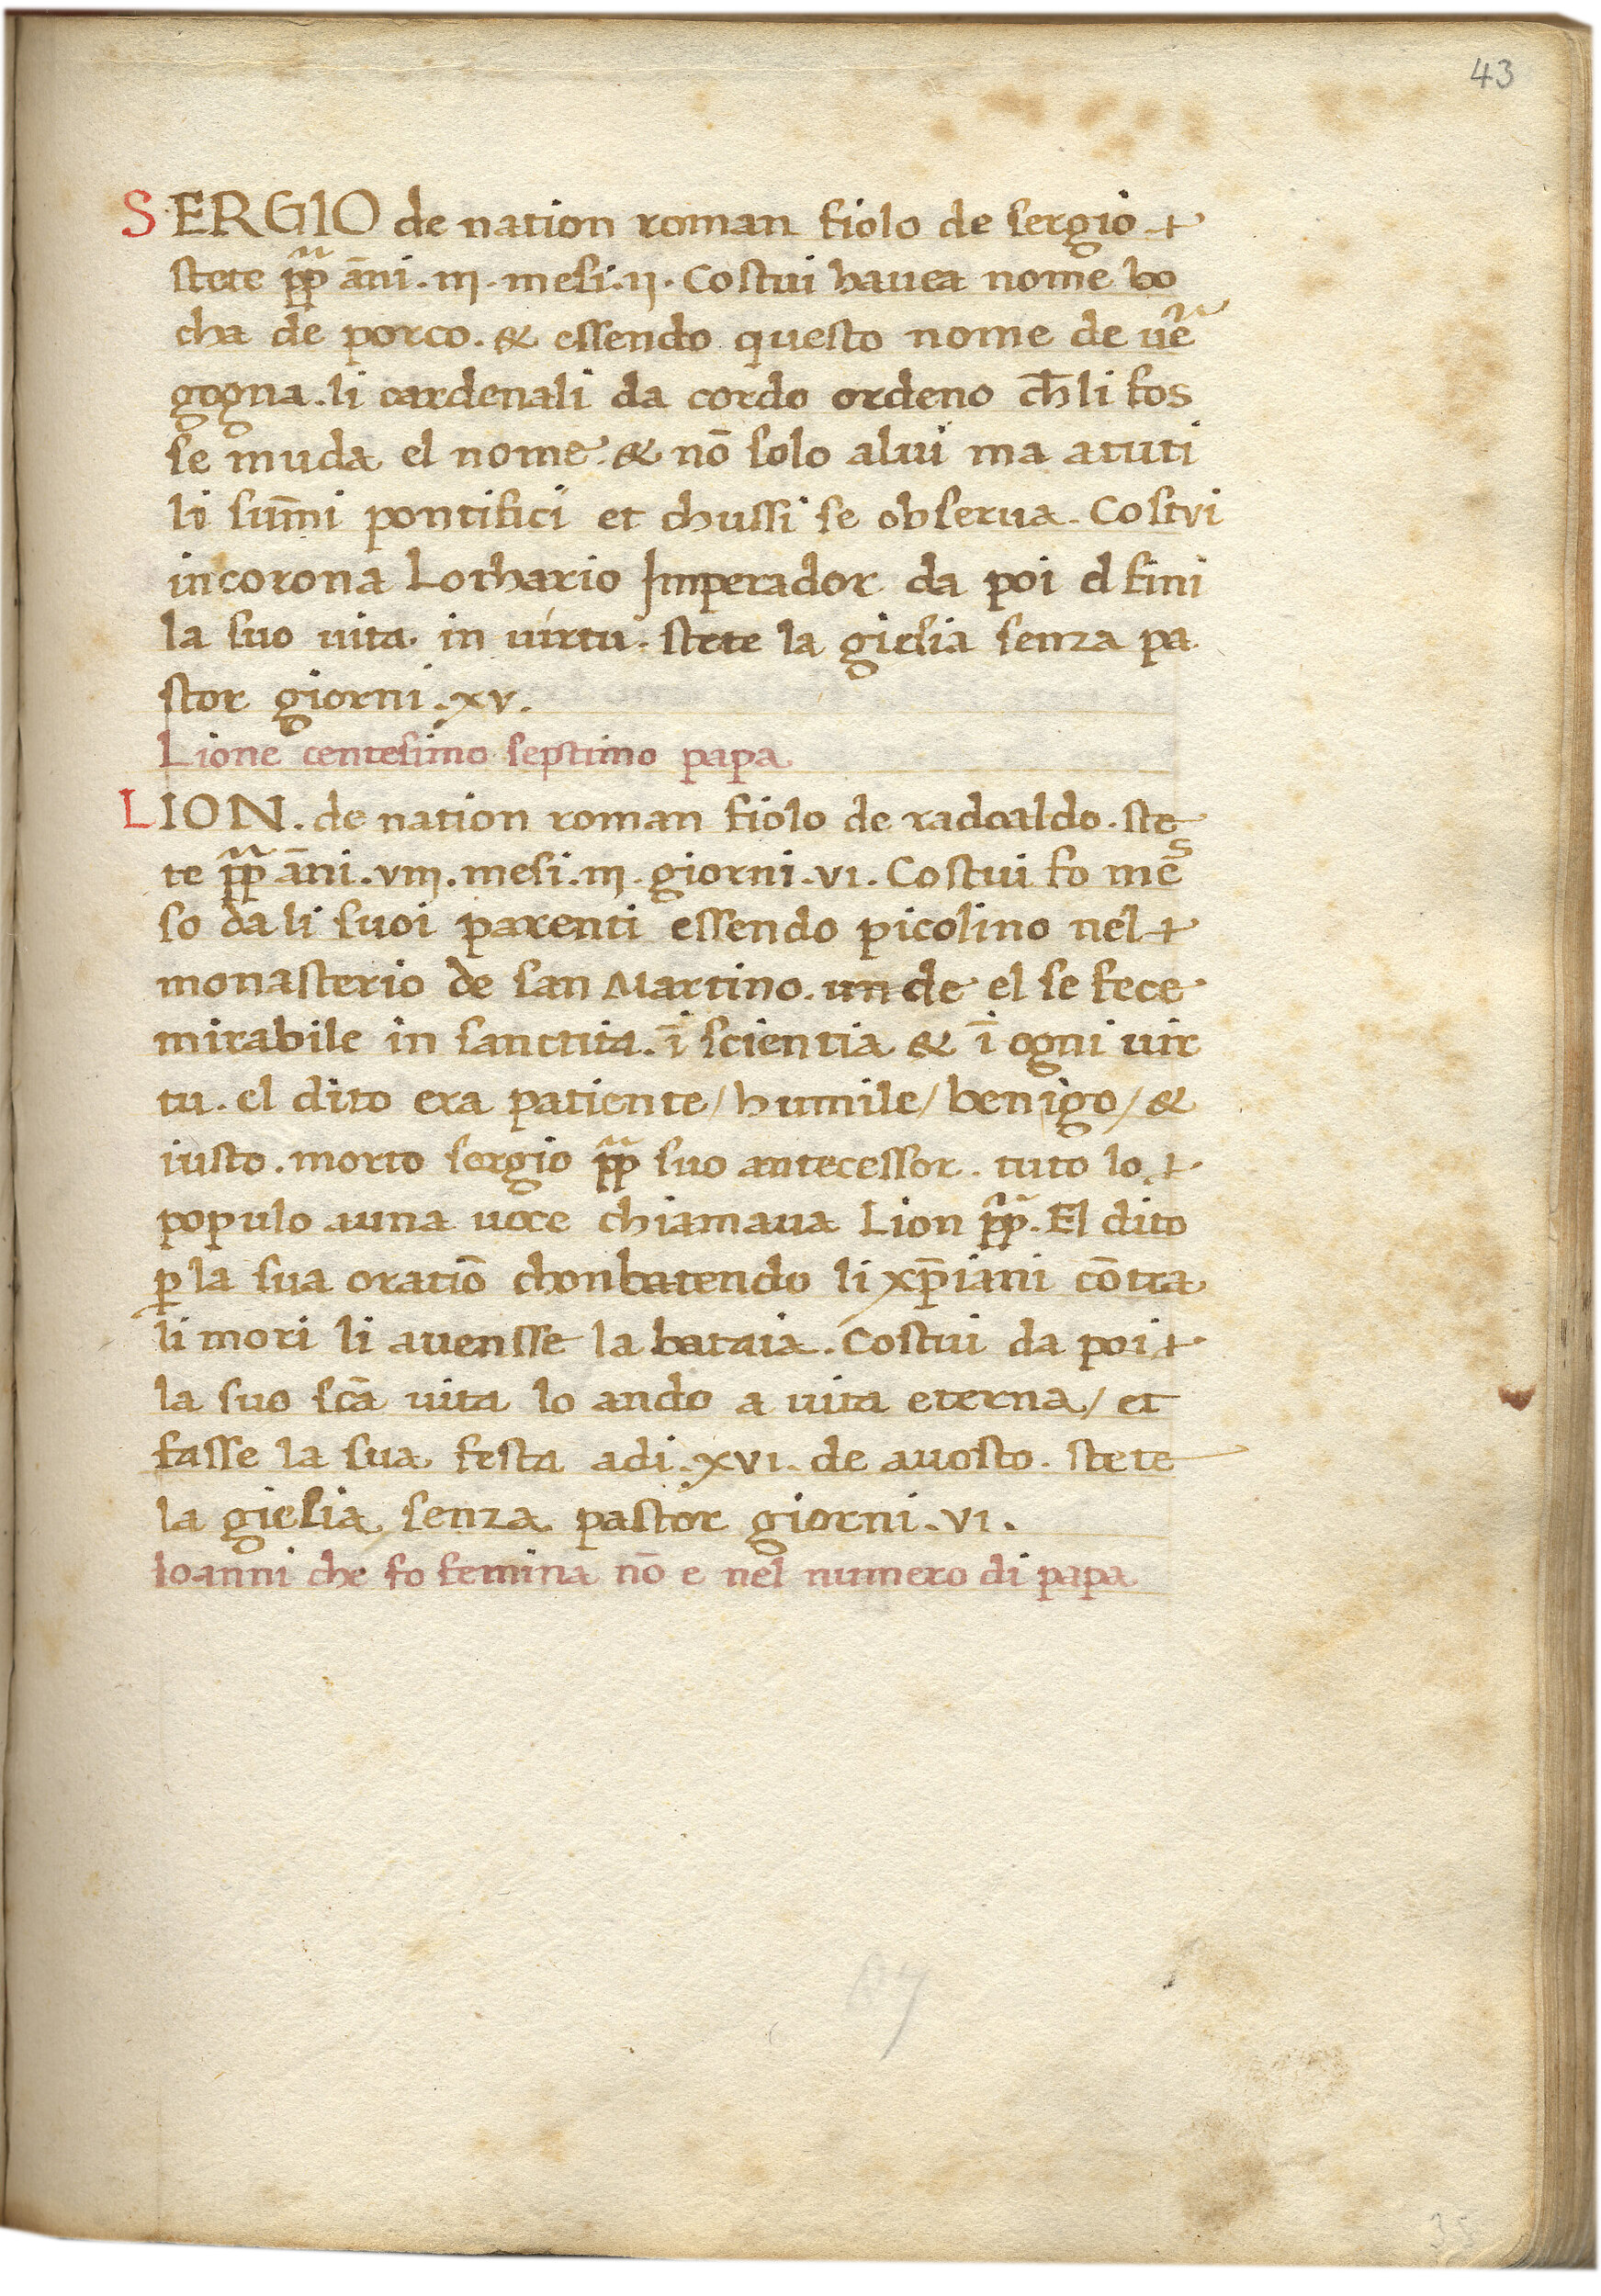 43
SERGIO de nation roman fiolo de sergio
stete pp̃ ãni . III . mesi . II . Costui hauea nome bo
cha de porco . & essendo questo nome de ue᷑
gogna . li cardenali da cordo ordeno ch̃ li fos
se muda el nome . & nõ solo alui ma atuti
li sum̃i pontifici et chussi se obserua . Costvi
incorona Lothario Imperador da poi d fini
la suo uita in uirtu . stete la giesia senza pa
stor giorni . xv .
Lione centesimo septimo papa
LION . de nation roman fiolo de radoaldo . ste
te pp̃ ãni . VIII . mesi . III . giorni . VI . Costui fo meᷤ
so da li suoi parenti essendo picolino nel
monasterio de san Martino . un de el se fece
mirabile in sanctita . ĩ scientia & ĩ ogni uir
tu . el dito era patiente / humile / benigo / &
iusto . morto sergio pp̃ suo antecessor . tuto lo
populo auna uoce chiamaua Lion pp̃ . El dito
ꝑ la sua oratiõ chonbatendo li xp̃iani cõtra
li mori li auensse la bataia . Costui da poi
la suo scã uita lo ando a uita eterna / et
fasse la sua festa adi . xvi . de auosto . stete
la giesia senza pastor giorni . VI .
Ioanni che fo femina nõ e nel numero di papa
87
35